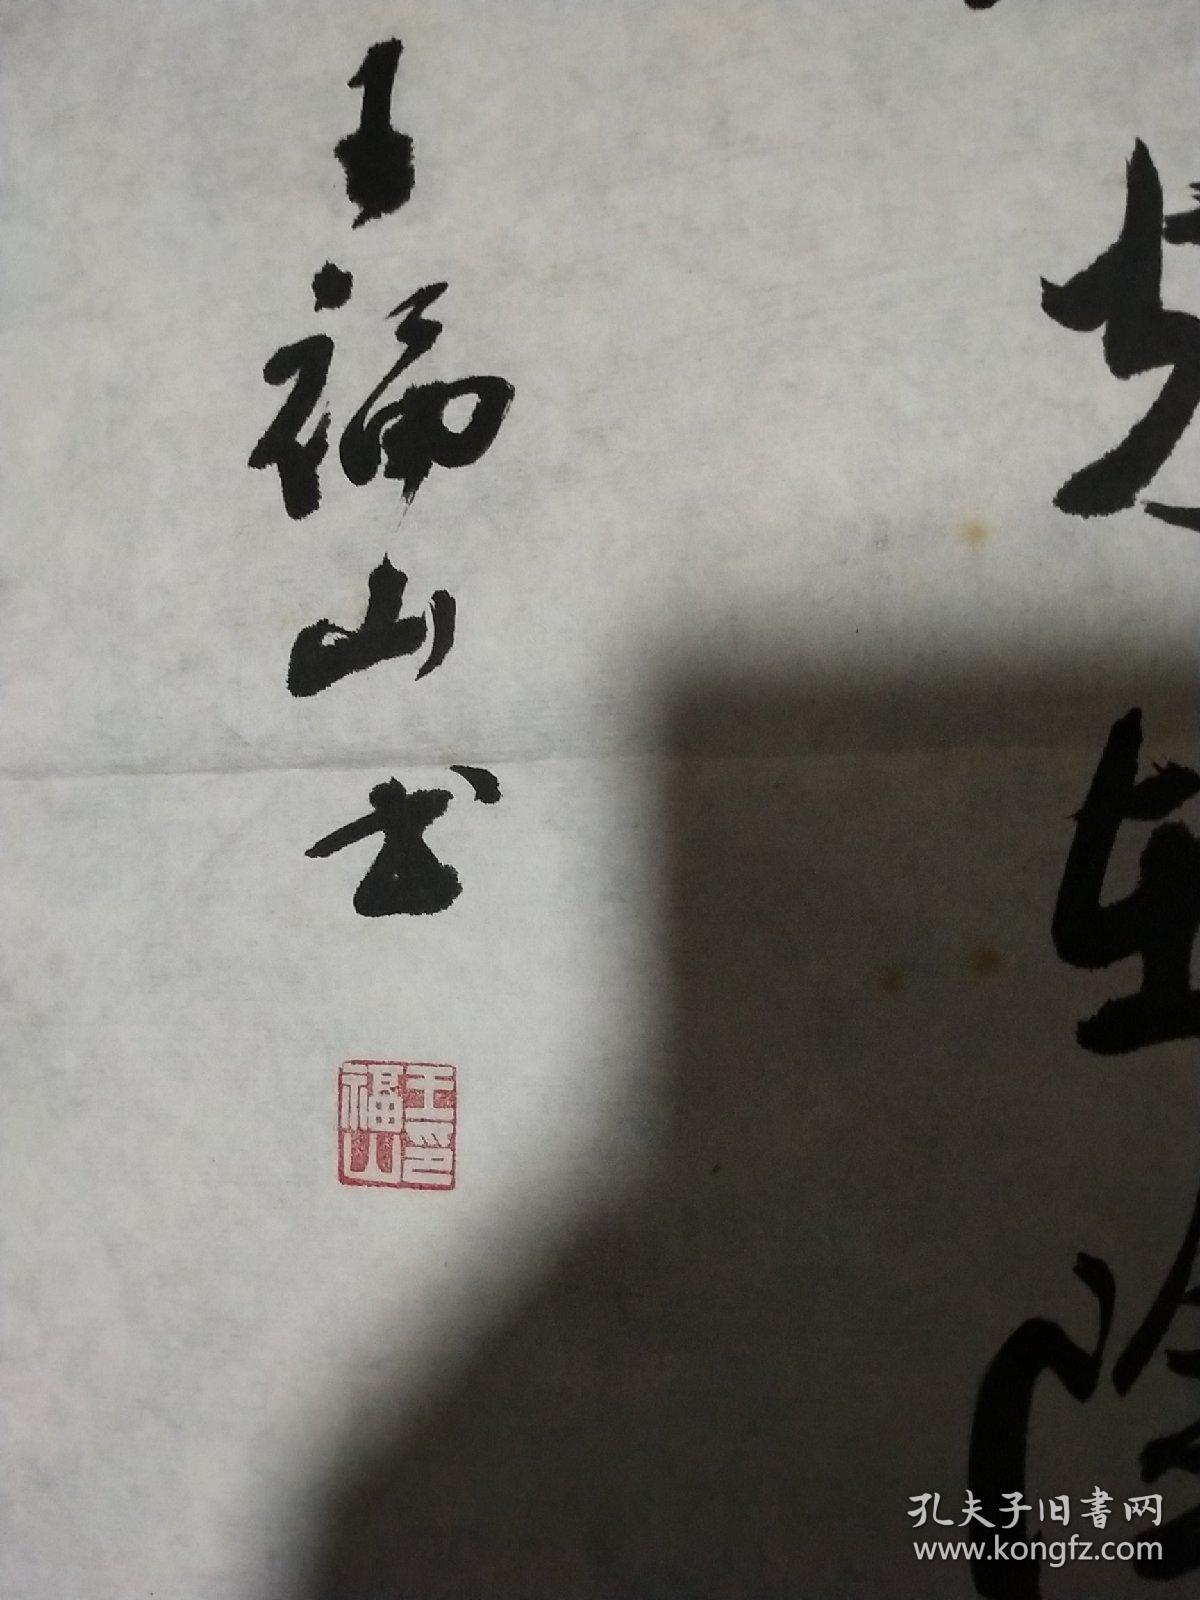 光在险
王福山书
王印
福山
孔夫子旧書网
www.kongfz.com